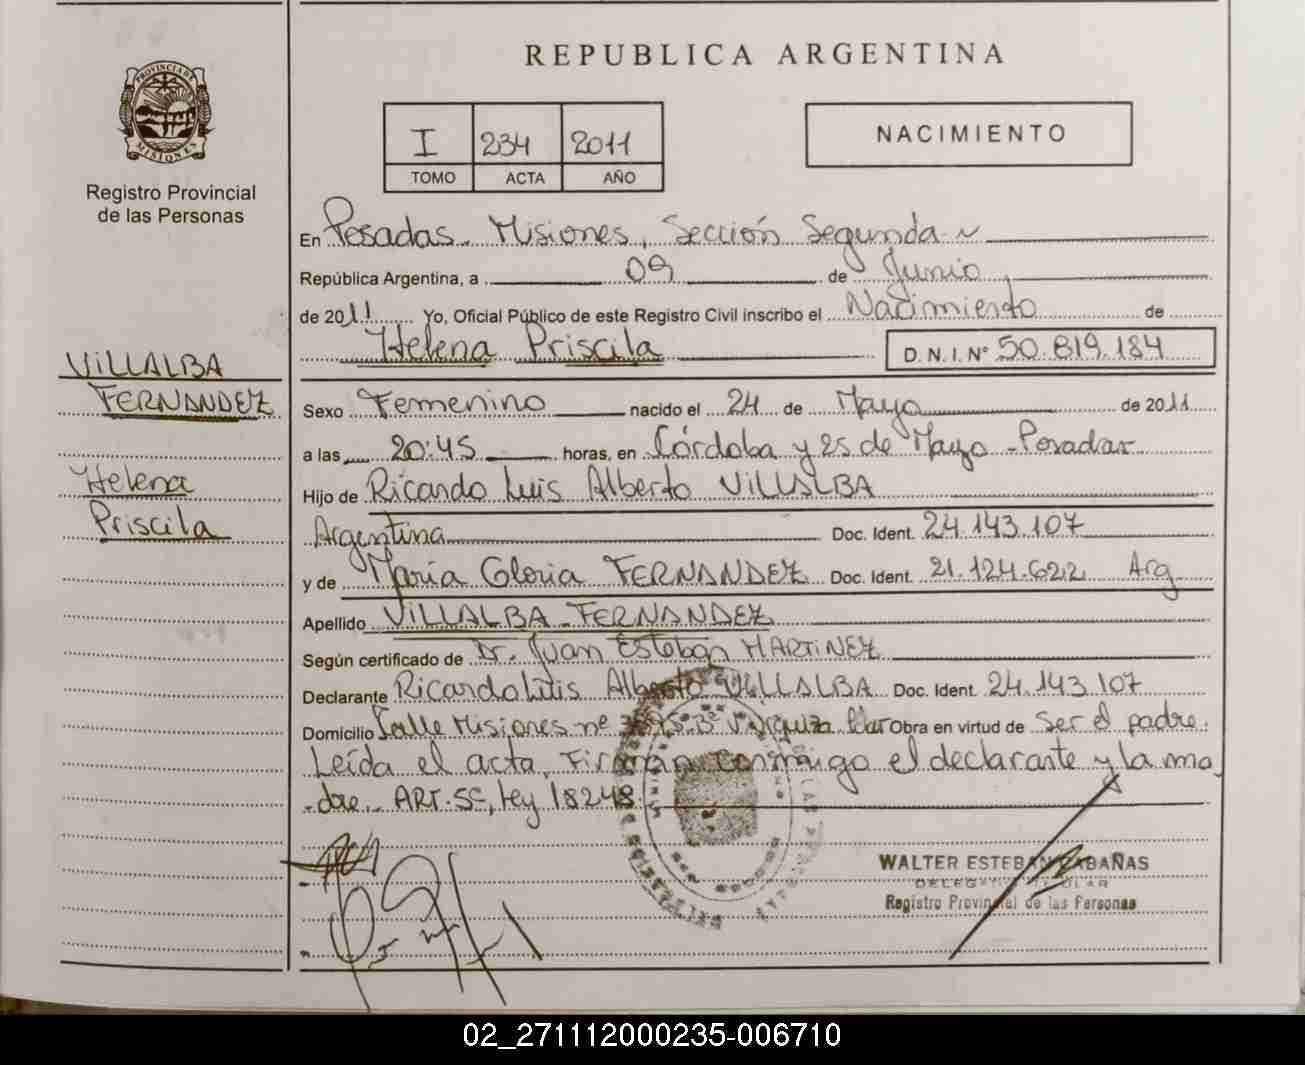 REPUBLICA ARGENTINA
PROVINCIA DE
MISIONES
Registro Provincial
de las Personas
I 234 2011
TOMO ACTA AÑO
NACIMIENTO
En Posadas Misiones, Sección Segunda
República Argentina, a 09 de Junio
de 2011 Yo, Oficial Público de este Registro Civil inscribo el Nacimiento de
Helena Priscila D.N.I.Nº 50.819.184
VILLALBA
FERNANDEZ
Helena
Priscila
Sexo Femenino nacido el 24 de Mayo de 2011
a las 20:45 horas, en Córdoba y 25 de Mayo - Posadas
Hijo de Ricardo Luis Alberto VILLALBA
Argentina Doc. Ident. 24.143.107
y de María Gloria FERNANDEZ Doc. Ident. 21.124.622 Arg
Apellido VILLALBA FERNANDEZ
Según certificado de Dr. Juan Esteban MARTINEZ
Declarante Ricardo Luis Alberto VILLALBA Doc. Ident. 24.143.107
Domicilio Calle Misiones nº Bº Obra en virtud de Ser el padre.
Leída el acta, Firman conmigo el declarante y la ma
dre. ART. 5º, Ley 18248
WALTER ESTEBAN CABAÑAS
DELEGADO TITULAR
Registro Provincial de las Personas
02_271112000235-006710